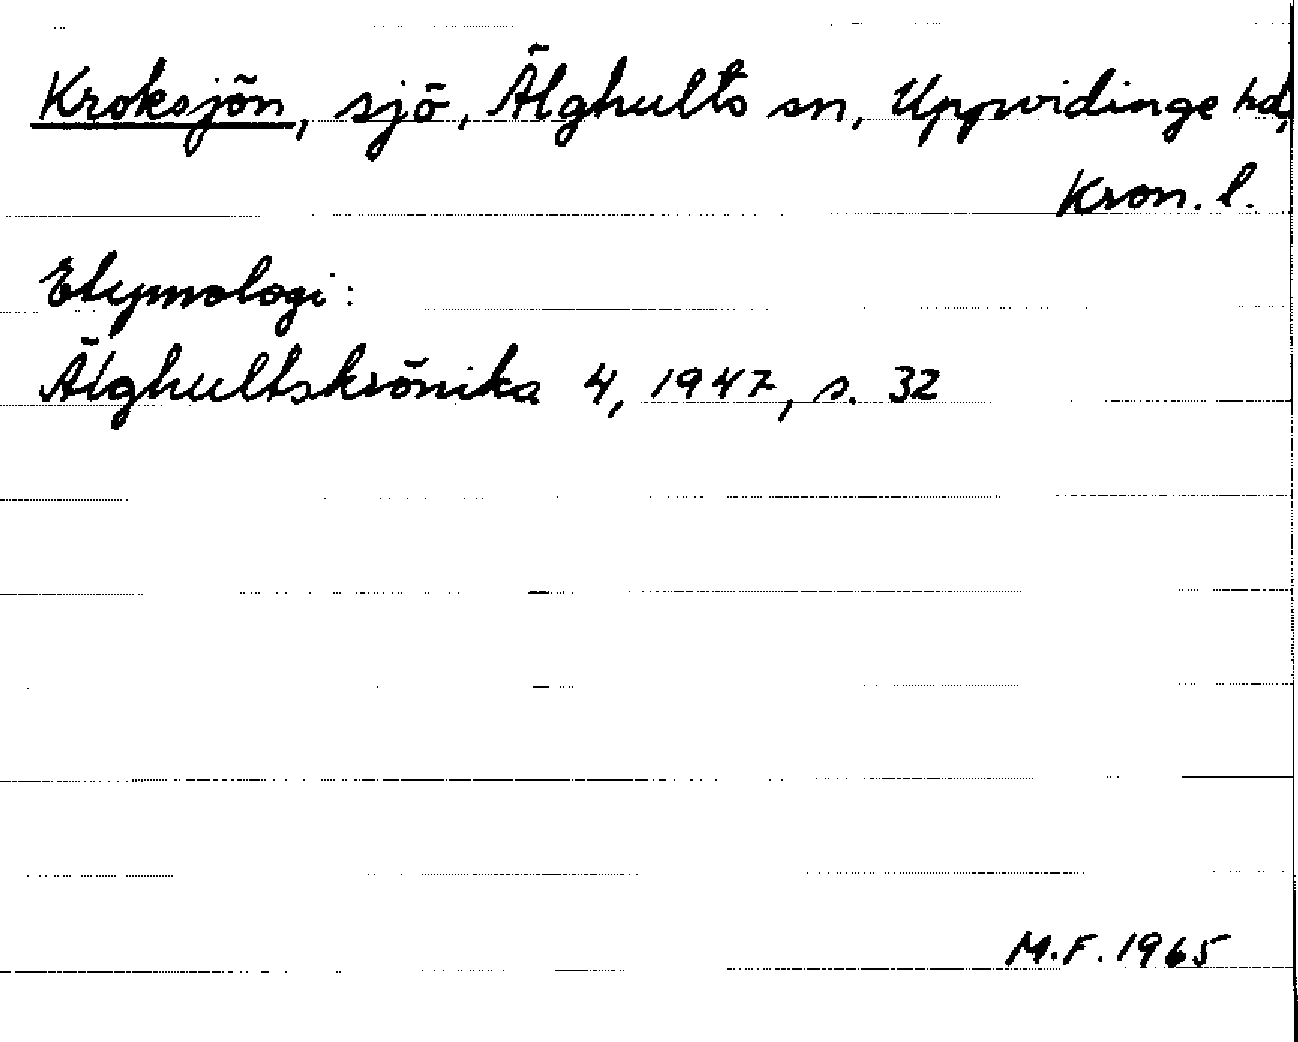 Kroksjön, sjö, Älghults sn, Uppvidinge hd,
Kron. l.
Etymologi:
Älghultskrönika 4, 1947, s. 32
M.F. 1965